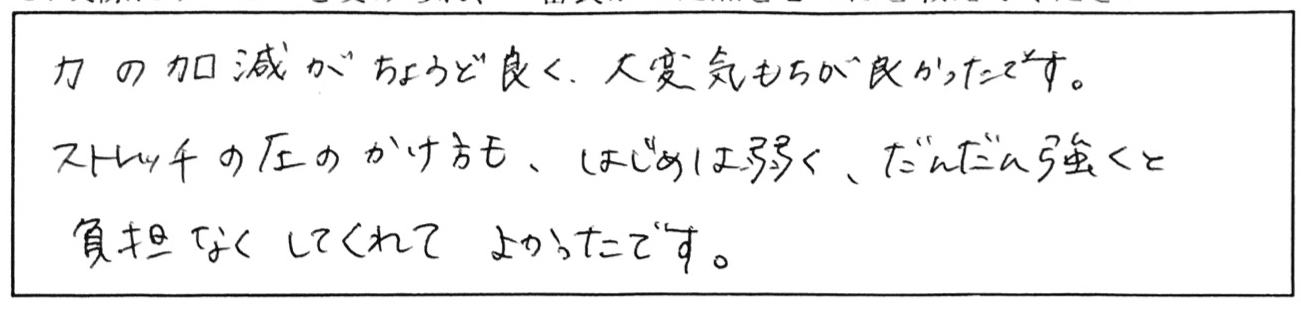 力の加減がちょうど良く、大変気もちが良かったです。
ストレッチの圧のかけ方も、はじめは弱く、だんだん強くと
負担なくしてくれてよかったです。